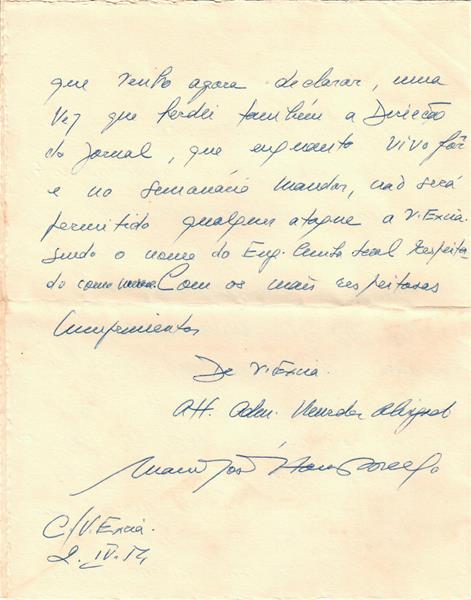 que venho agora declarar, uma
vez que herdei também a Direcção
do Jornal, que enquanto vivo fôr
e no semanário mandar, não será
permitido qualquer ataque a V. Excia.
sendo o nome do Eng. Cunha Leal respeita
do como Com os mais respeitosos
Cumprimentos
De V. Excia.
Att. Adm. Venerador Obrigado
Mario José
C/V. Excia.
2. IV. 54